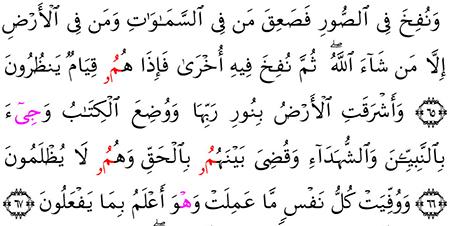 وَنُفِخَ فِى ٱلصُّورِ فَصَعِقَ مَن فِى ٱلسَّمَـٰوَٰتِ وَمَن فِى ٱلْأَرْضِ
إِلَّا مَن شَآءَ ٱللَّهُ ۖ ثُمَّ نُفِخَ فِيهِ أُخْرَىٰ فَإِذَا هُمُۥ قِيَامٌ يَنظُرُونَ
﴿٦٥﴾ وَأَشْرَقَتِ ٱلْأَرْضُ بِنُورِ رَبِّهَا وَوُضِعَ ٱلْكِتَـٰبُ وَجِىٓءَ
بِٱلنَّبِيِّـۧنَ وَٱلشُّهَدَآءِ وَقُضِىَ بَيْنَهُمُۥ بِٱلْحَقِّ وَهُمُۥ لَا يُظْلَمُونَ
﴿٦٦﴾ وَوُفِّيَتْ كُلُّ نَفْسٍ مَّا عَمِلَتْ وَهْوَ أَعْلَمُ بِمَا يَفْعَلُونَ ﴿٦٧﴾